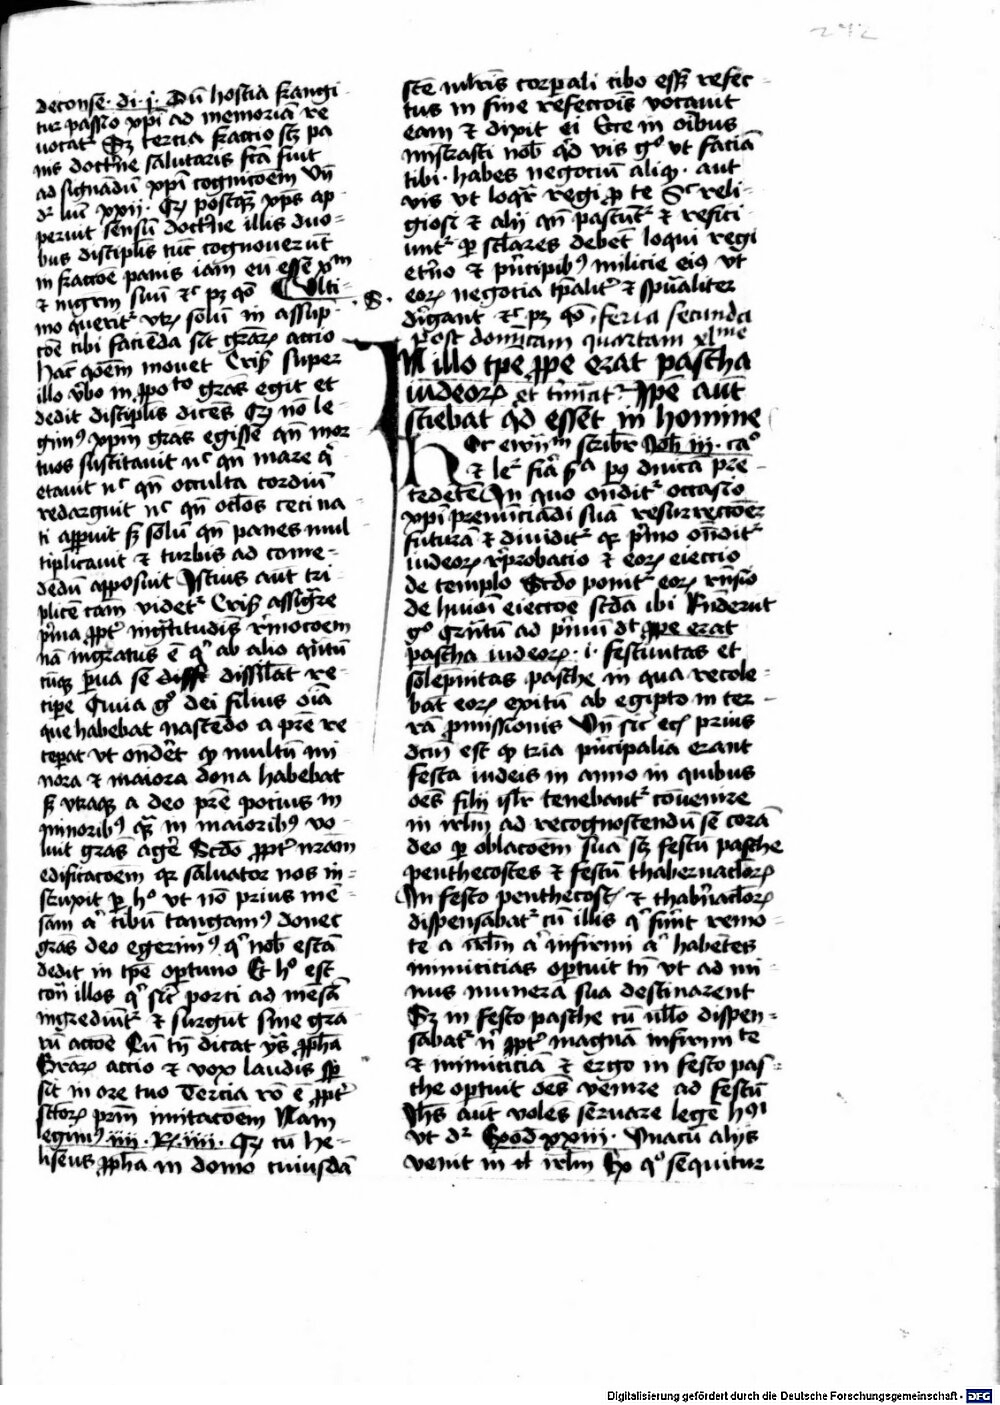 242
de conse. di. j. Dū hostia frangi
tur passio xpi ad memoriā re
uocat. Sz tercia fraccio scz pa
nis doctne salutaris fcā fuit
ad signādū xpi cognicoēm Vn̄
dr luc̄ xxij. Qz postqz xps ap
peruit sensū doctne illis duo-
bus discipl̄is tūc cognouerūt
in fraccoē panis iam eū esse xm
et nigrm suū &c pz qo Vlti-
mo querit vtz solū in assūp-
coē cibi facienda sit graz actio
Hāc qoēm mouet Cris super
illo vbo in ppoto gras egit et
dedit discipl̄is dicēs Qz nō le-
gim9 xpm gras egisse qn̄ mor
tuos suscitauit nc qn̄ mare qi
etauit nc qn̄ occulta cordiū
redarguit nc qn̄ oclos ceci na
ti apperuit sz solū qn̄ panes mul
tiplicauit et turbis ad come-
dēdū apposuit Istius aūt tri
plicē cām videtr Cris assigre
pma ppt ingratitudis rmocoem
nā ingratus ē qi ab alio qntū
cūqz pua se dissilat re-
cipe Quia go dei filius oīa
que habebat nascēdo a pre re
ceperat vt ondēt qp multū mi
nora et maiora dona habebat
sz vtraqz a deo pre potius in
minorib9 qz in maiorib9 vo-
luit gras agē Scdo ppt nram
edificacoēm qz saluator nos in-
struxit p ho vt nō prius mē-
sam a cibū tangam9 donec
gras deo egerim9 qi nob escā
dedit in tpe optuno Et ho est
con illos qi sic porci ad mesā
ingrediūt et surgūt sine gra
rū actoe Cū tn̄ dicat ys ppha
Graz actio et vox laudis sp
sit in ore tuo Tercia ro ē ppt
sctoz prim imitacoēm Nam
legim9 iiii. R. iiii. Qz cū he-
liseus ppha in domo cuiusdā
scie mlris corporali cibo essz refec-
tus in fine refectois vocauit
eam et dixit ei Ecce in oibus
mistrasti nob qd vis go vt faciā
tibi. habes negociū aliqz. aut
vis vt loqr regi p te Sc reli-
giosi et alij qn̄ pascūt et refici
unt p sclares debēt loqui regi
etno et pncipib9 milicie ei9 vt
eoz negocia tpalit et spūaliter
dirigant &c pz qo. feria secunda
.S. post domicam quartam xlme
In illo tpe ppe erat pascha
iudeoz et timāt. Ipe aūt
sciebat qd essēt in homine
Hec ewim scribr Joh iii. cao
et ler fia sa p9 dnicā pre-
cedetē In quo ondit occasio
xpi prenūciādi suā resurrectoēz
futurā et diuidit qz pmo ondit
iudeoz rprobacio et eoz eieccio
de templo Scdo ponit eoz rnsio
de huiōi eieccoe scda ibi Rnderūt
go Quātū ad pmū dr ppe erat
pascha iudeoz. i. festiuitas et
solepnitas pasche in qua recole-
bāt eoz exitū ab egipto in ter-
rā pmissionis Vn̄ sic eci prius
dcm est qp tria pncipalia erant
festa iudeis in anno in quibus
oēs filij isr tenebant conuenire
in irlm ad recognoscendū se corā
deo p oblacoēm suā scz festū pasche
penthecostes et festū thabernacloz
In festo penthecost et thabnacloz
dispensabat cū illis qi sunt remo-
te a irlm a infirmi a habētes
inimicicias optuit tn̄ vt ad mi-
nus munera sua destinarent
Sz in festo pasche cū nllo dispen-
sabat n ppt magnā infirmite
et inimiciciā et ergo in festo pas-
che optuit oēs venire ad festū
Ihs aut volēs seruare legē hāc
vt dr Exod xxiii. Vnacū alijs
venit in irlm Ex qo sequitur
Digitalisierung gefördert durch die Deutsche Forschungsgemeinschaft - DFG